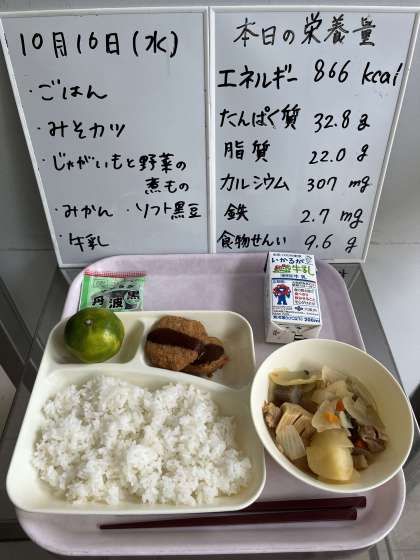 10月16日(水)
・ごはん
・みそカツ
・じゃがいもと野菜の
煮もの
・みかん ・ソフト黒豆
・牛乳
本日の栄養量
エネルギー 866 kcal
たんぱく質 32.8 g
脂質 22.0 g
カルシウム 307 mg
鉄 2.7 mg
食物せんい 9.6 g
丹波黒
いかるが
牛乳